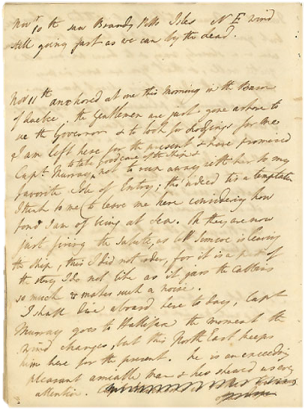 Novr 10th near Brandy Potts Isles N E wind
still going fast as we can by the lead.
Nov 11th anchored at one this morning in the Bason
of Quebec, the Gentlemen are just gone ashore to
see the Governor & to look for Lodgings for me
I am left here for the present & have promised
to take good care of the Ship &
Capt. Murray not to run away with her to my
favorite Isle of Entry; tho indeed tis a temptation
I think to me to leave me here considering how
fond I am of being at sea. They are now
just firing the Salute, as Coll Simcoe is leaving
the ship, this I did not alter, for it is a part of
the story I do not like as it jars the Cabbins
so much & makes such a noise.
I shall live aboard here to day, Capt
Murray goes to Hallifax the moment the
wind changes, but this North East keeps
him here for the present. he is an exceeding
pleasant amiable man & has shewed us every
attention.